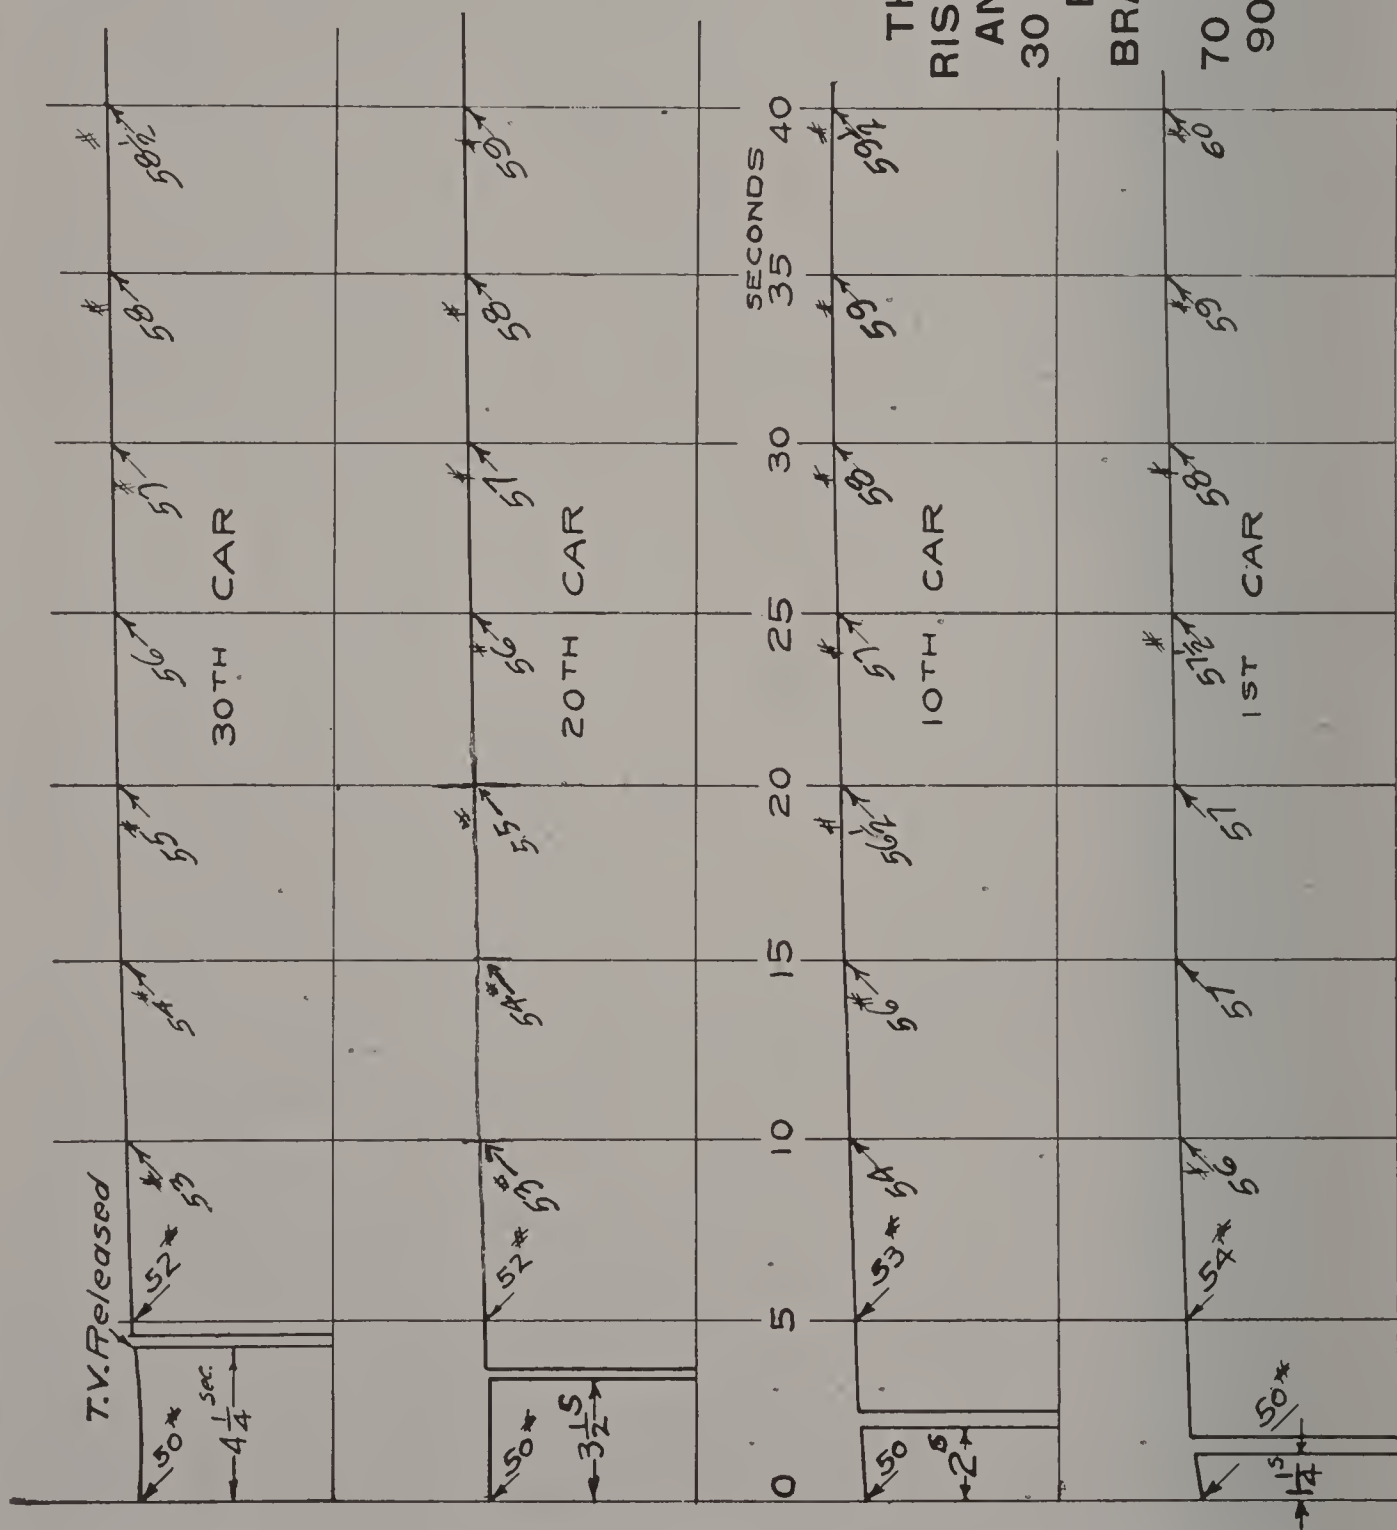 T.V. Released
50# 52# 53# 54# 55# 56 57# 58# 58½#
4 1/4 sec.
30TH CAR
50# 52# 53# 54# 55# 56# 57# 58# 59#
3 1/2 S
20TH CAR
SECONDS
0 5 10 15 20 25 30 35 40
50 53# 54 56# 56½# 57# 58# 59# 59½#
2 S
10TH CAR
50# 54# 56# 57 57 57½# 58# 59# 60#
1 1/4 S
1ST CAR
RIS
AN
30
BRA
70
90